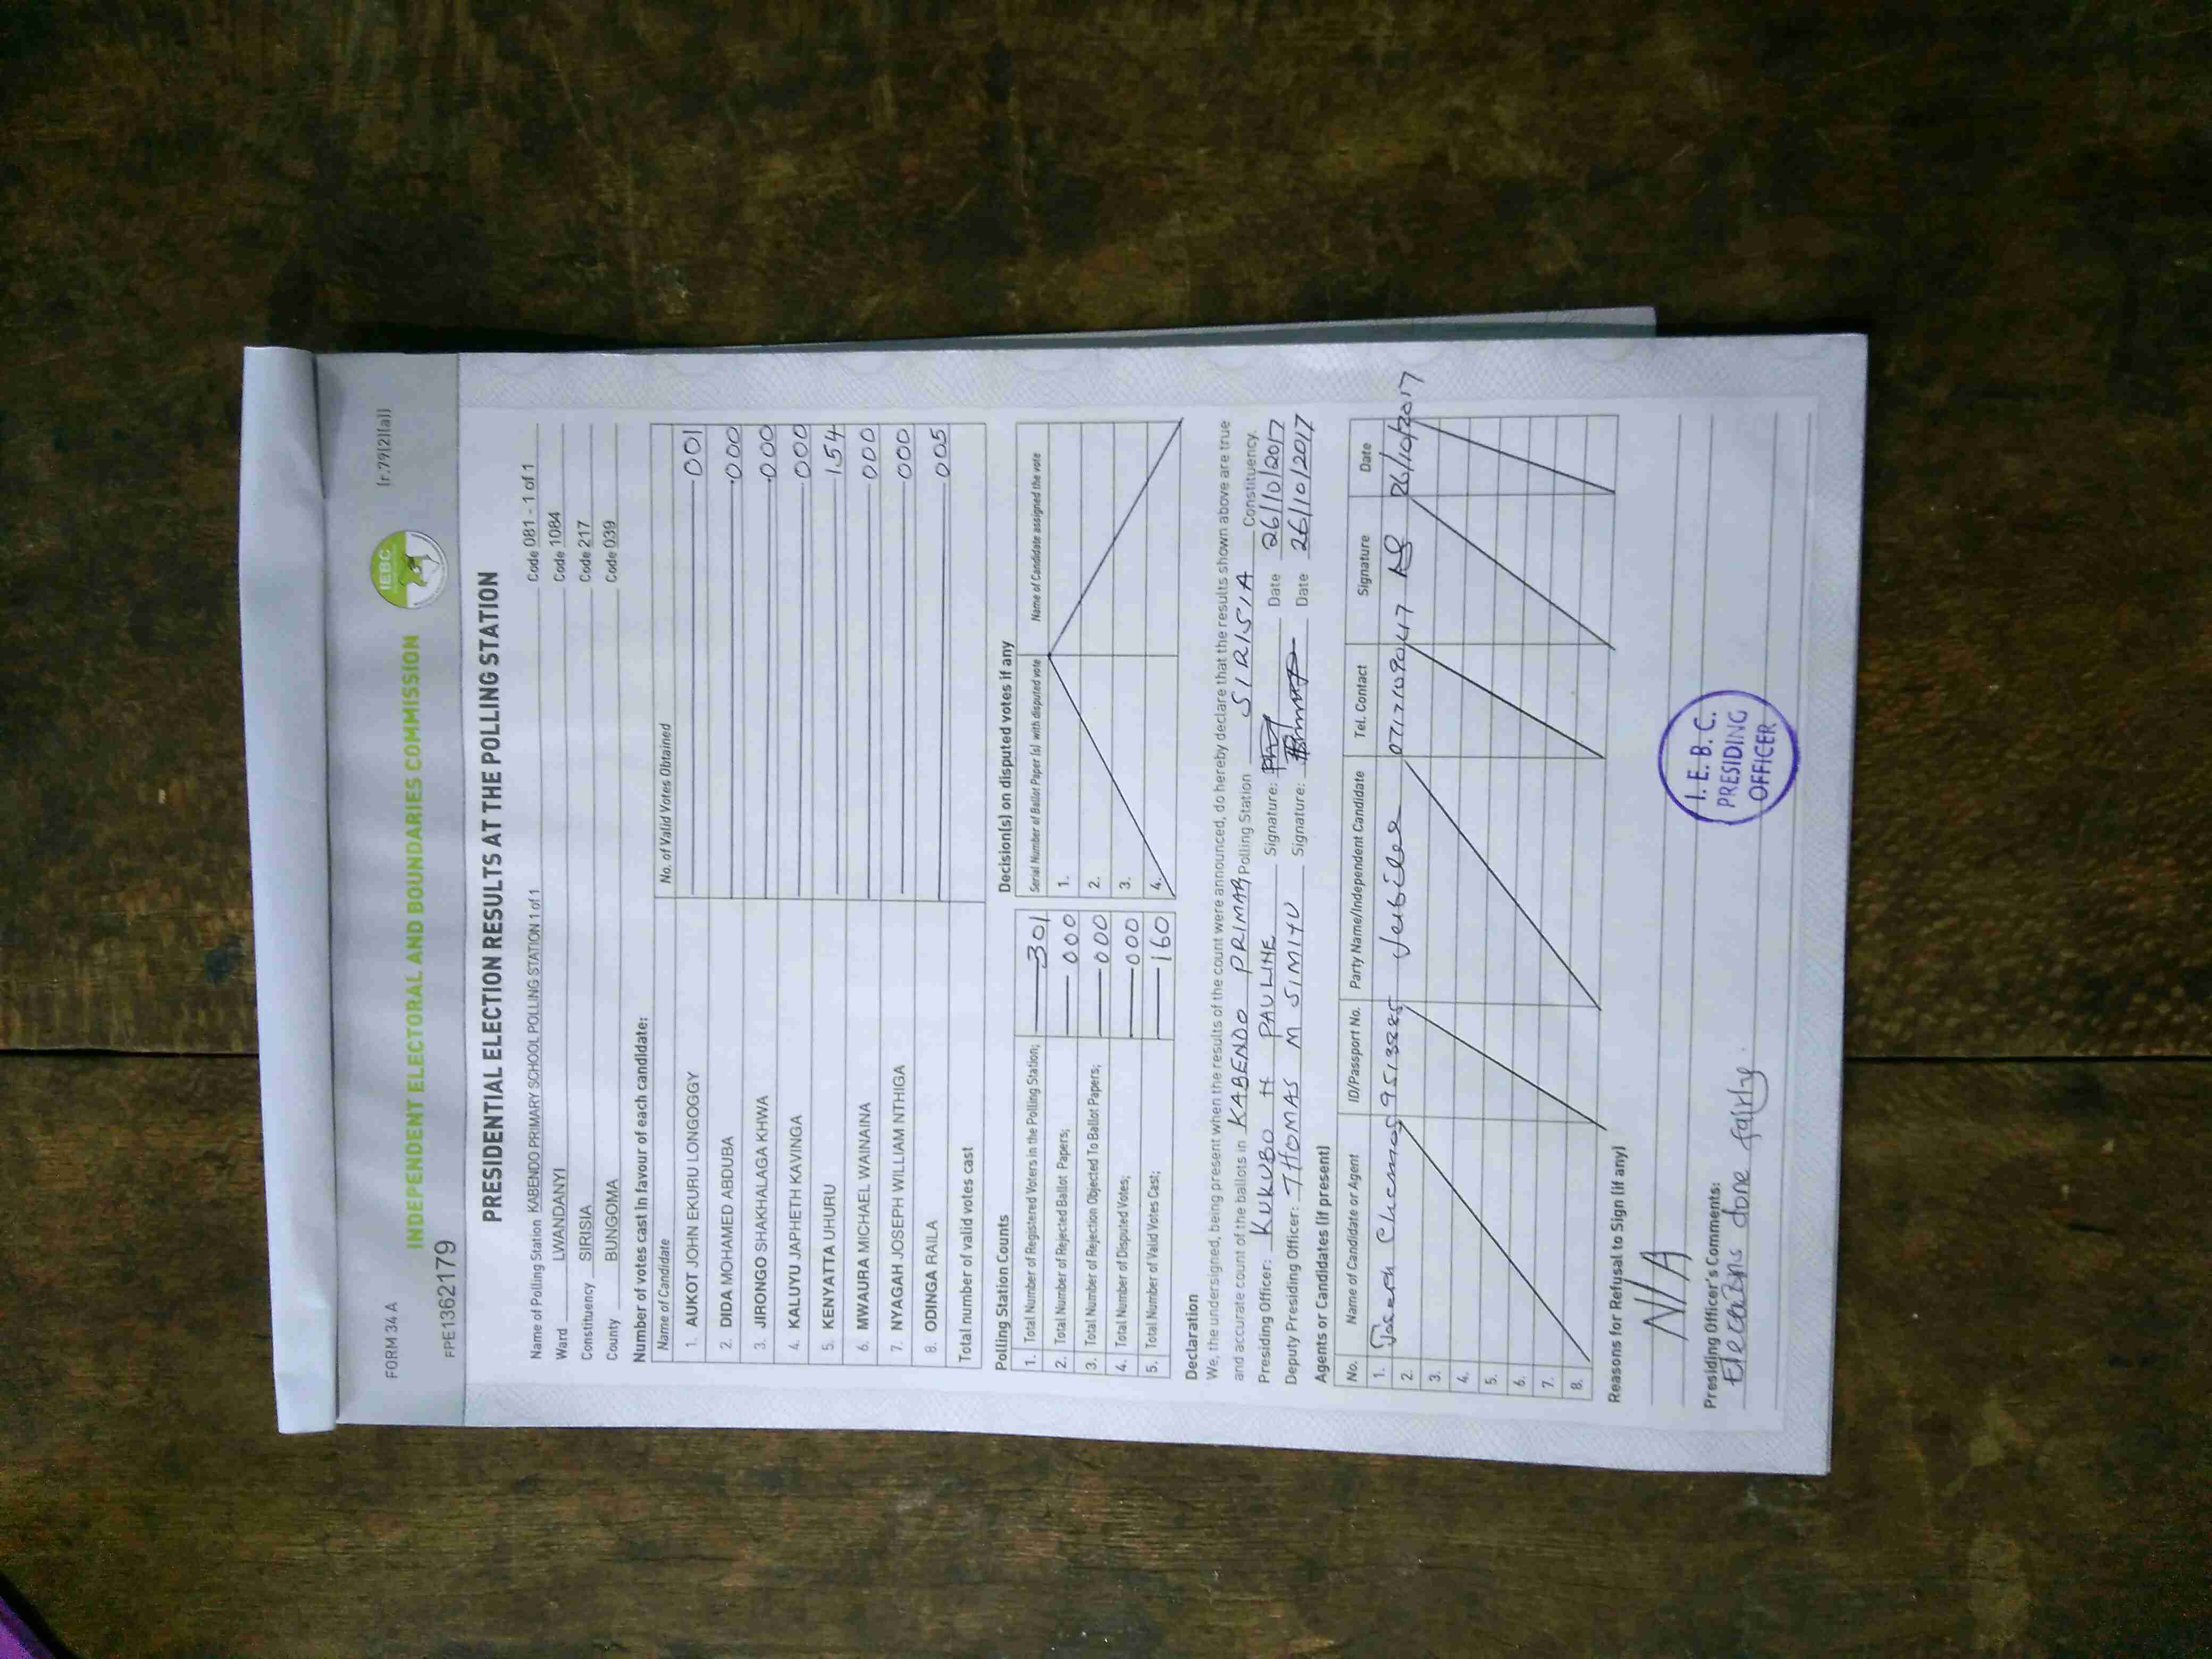 FORM 34 A
(r.79(2)(a))
IEBC
INDEPENDENT ELECTORAL AND BOUNDARIES COMMISSION
FPE1362179
PRESIDENTIAL ELECTION RESULTS AT THE POLLING STATION
Name of Polling Station KABENDO PRIMARY SCHOOL POLLING STATION 1 of 1 Code 081 - 1 of 1
Ward LWANDANYI Code 1084
Constituency SIRISIA Code 217
County BUNGOMA Code 039
Number of votes cast in favour of each candidate:
Name of Candidate No. of Valid Votes Obtained
1. AUKOT JOHN EKURU LONGOGGY 001
2. DIDA MOHAMED ABDUBA 000
3. JIRONGO SHAKHALAGA KHWA 000
4. KALUYU JAPHETH KAVINGA 000
5. KENYATTA UHURU 154
6. MWAURA MICHAEL WAINAINA 000
7. NYAGAH JOSEPH WILLIAM NTHIGA 000
8. ODINGA RAILA 005
Total number of valid votes cast
Polling Station Counts
1. Total Number of Registered Voters in the Polling Station; 301
2. Total Number of Rejected Ballot Papers; 000
3. Total Number of Rejection Objected To Ballot Papers; 000
4. Total Number of Disputed Votes; 000
5. Total Number of Valid Votes Cast; 160
Decision(s) on disputed votes if any
Serial Number of Ballot Paper (s) with disputed vote Name of Candidate assigned the vote
1.
2.
3.
4.
Declaration
We, the undersigned, being present when the results of the count were announced, do hereby declare that the results shown above are true
and accurate count of the ballots in KABENDO PRIMARY Polling Station SIRISIA Constituency.
Presiding Officer: KUKUBO H PAULINE Signature: Date 26/10/2017
Deputy Presiding Officer: THOMAS M SIMIYU Signature: Date 26/10/2017
Agents or Candidates (if present)
No. Name of Candidate or Agent ID/Passport No. Party Name/Independent Candidate Tel. Contact Signature Date
1. Jubilee 26/10/2017
2.
3.
4.
5.
6.
7.
8.
Reasons for Refusal to Sign (if any)
N/A
Presiding Officer's Comments:
Elections done fairly.
I.E.B.C.
PRESIDING
OFFICER